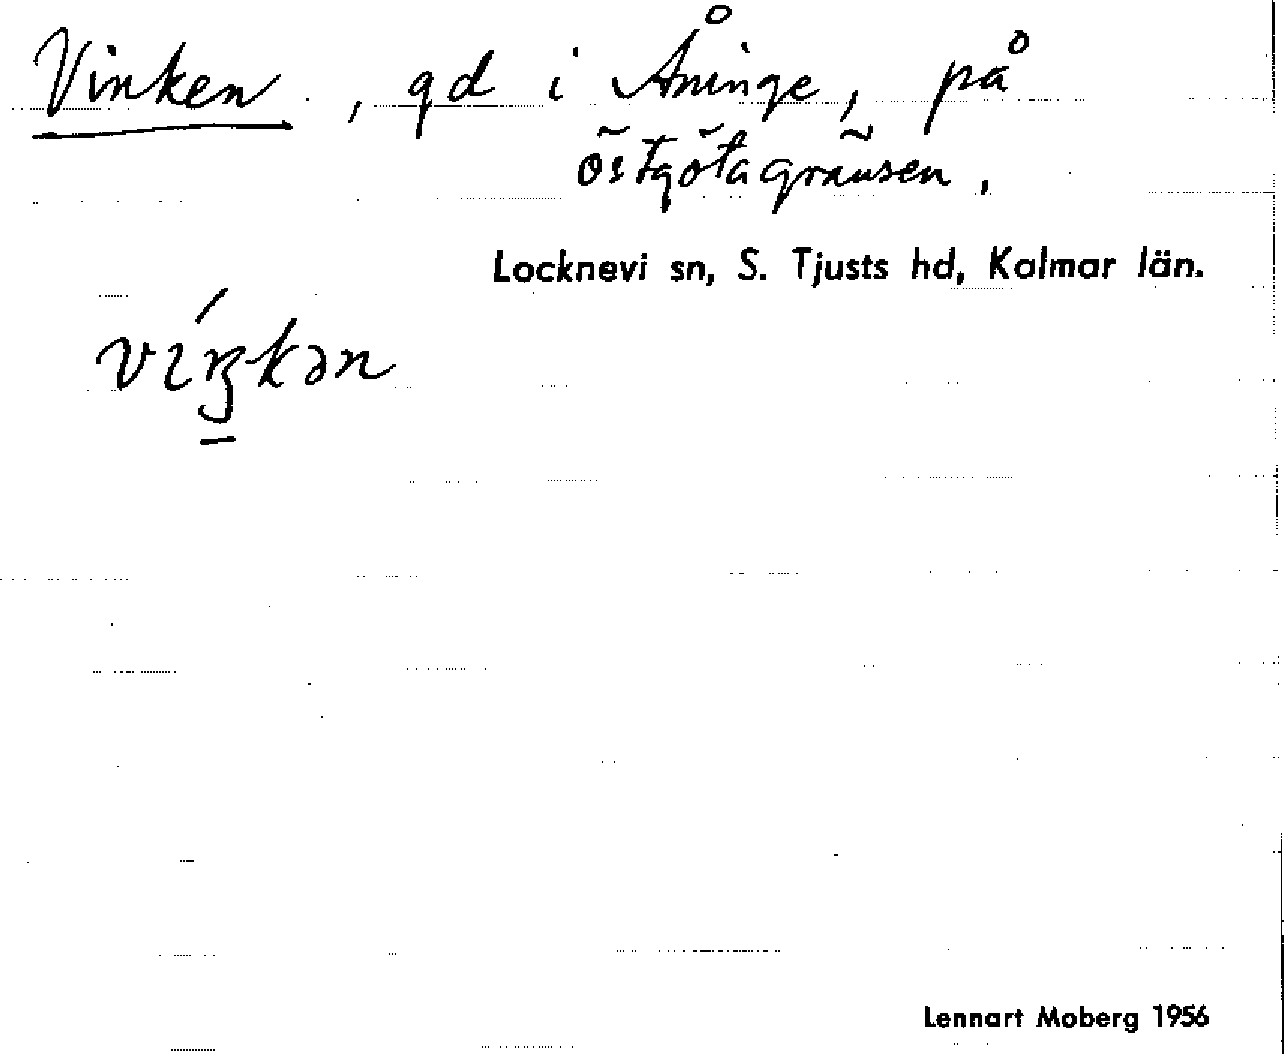 Vinken, gd i Åninge, på
östgötagränsen.
Locknevi sn, S. Tjusts hd, Kalmar län.
víŋkən
Lennart Moberg 1956